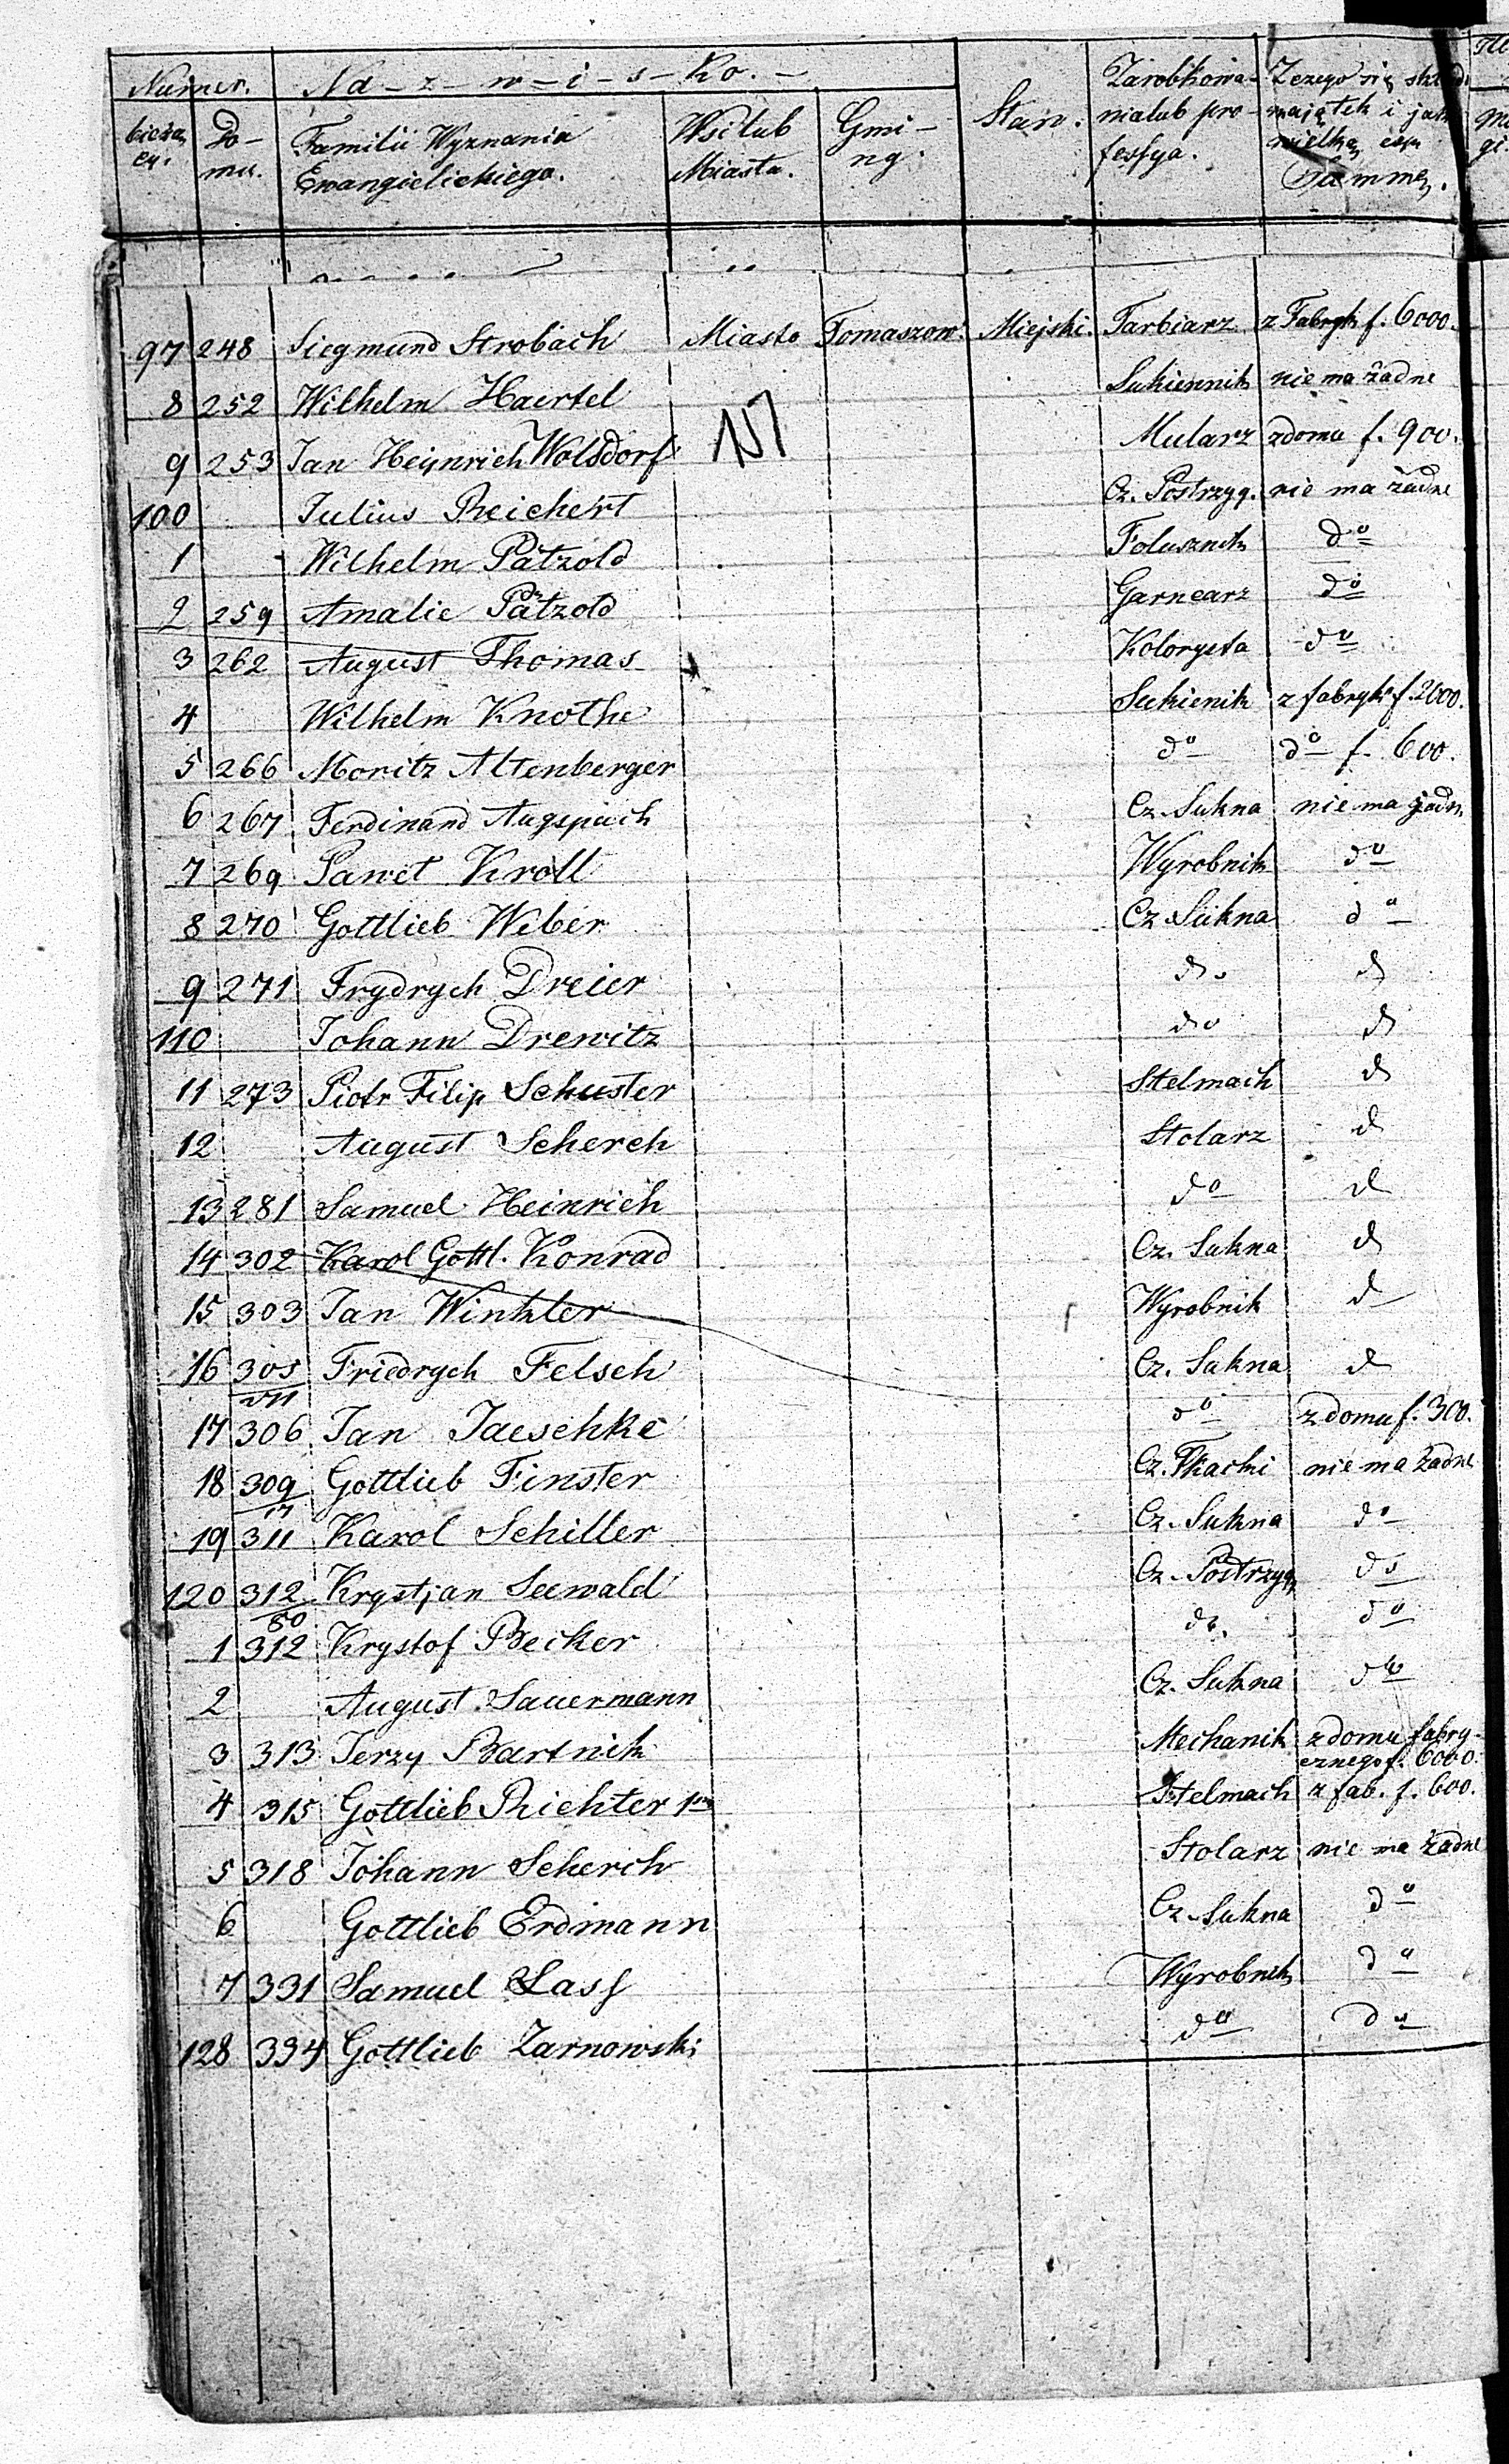 Numer. Na-z-w-i-s-ko.-
bieżący. Domu. Familii Wyznania Ewangielickiego. Wsi lub Miasta. Gminy. Stan. Zarobkowania lub professya. Z czego się składa majątek i jak wielką czyni Summę.
97 248 Siegmund Strobach Miasto Tomaszow. Miejski. Farbiarz z Fabryk f. 6000.
8 252 Wilhelm Haertel Sukiennik nie ma żadne
9 253 Jan Heynrich Wolsdorf Mularz z domu f. 900.
100 Julius Reichert Cz. Postrzyg. nie ma żadne
1 Wilhelm Pätzold Folusznik do
2 259 Amalie Pätzold Garncarz do
3 262 August Thomas Kolorysta do
4 Wilhelm Knothe Sukienik z fabryk f. 2600.
5 266 Moritz Altenberger do do f. 600.
6 267 Ferdinand Augspach Cz. Sukna nie ma żadn
7 269 Paweł Kroll Wyrobnik do
8 270 Gottlieb Weber Cz Sukna do
9 271 Frydrych Dreier do d
110 Johann Drewitz do d
11 273 Piotr Filip Schuster Stelmach d
12 August Scherch Stolarz d
13 281 Samuel Heinrich do d
14 302 Karol Gottl. Konrad Cz. Sukna d
15 303 Jan Winkler Wyrobnik d
16 305 Friedrych Felsch Cz. Sukna d
17 306 Jan Jaeschke do z domu f. 300.
18 309 Gottlieb Finster Cz. Tkacki nie ma żadne
19 311 Karol Schiller Cz. Sukna do
120 312/80 Krystjan Seewald Cz. Postrzyg do
1 312 Krystof Becker do. do
2 August Sauermann Cz. Sukna do
3 313 Jerzy Bartnik Mechanik z domu fabrycznego f. 6000.
4 315 Gottlieb Richter Stelmach z fab. f. 600.
5 318 Johann Scherch Stolarz nie ma żadne
6 Gottlieb Erdmann Cz. Sukna do
7 331 Samuel Lass Wyrobnik do
128 334 Gottlieb Zarnowski do do